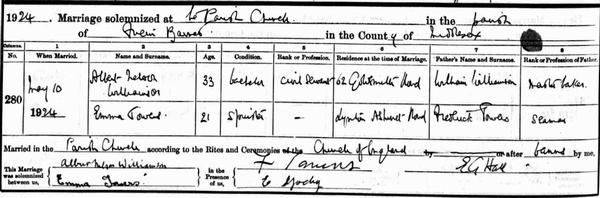 1924. Marriage solemnized at the Parish Church in the parish
of Friern Barnet in the County of Middlesex
Columns. 1 2 3 4 5 6 7 8
No. When Married. Name and Surname. Age. Condition. Rank or Profession. Residence at the time of Marriage. Father's Name and Surname. Rank or Profession of Father.
280 May 10 1924 Albert Nelson Williamson 33 bachelor civil servant 62 Road William Williamson master baker
Emma Towers 21 Spinster – Road Frederick Towers seaman
Married in the Parish Church according to the Rites and Ceremonies of the Church of England by or after banns by me,
This Marriage was solemnized between us, Albert Nelson Williamson in the Presence of us, F Parsons E G Hall
Emma Towers E